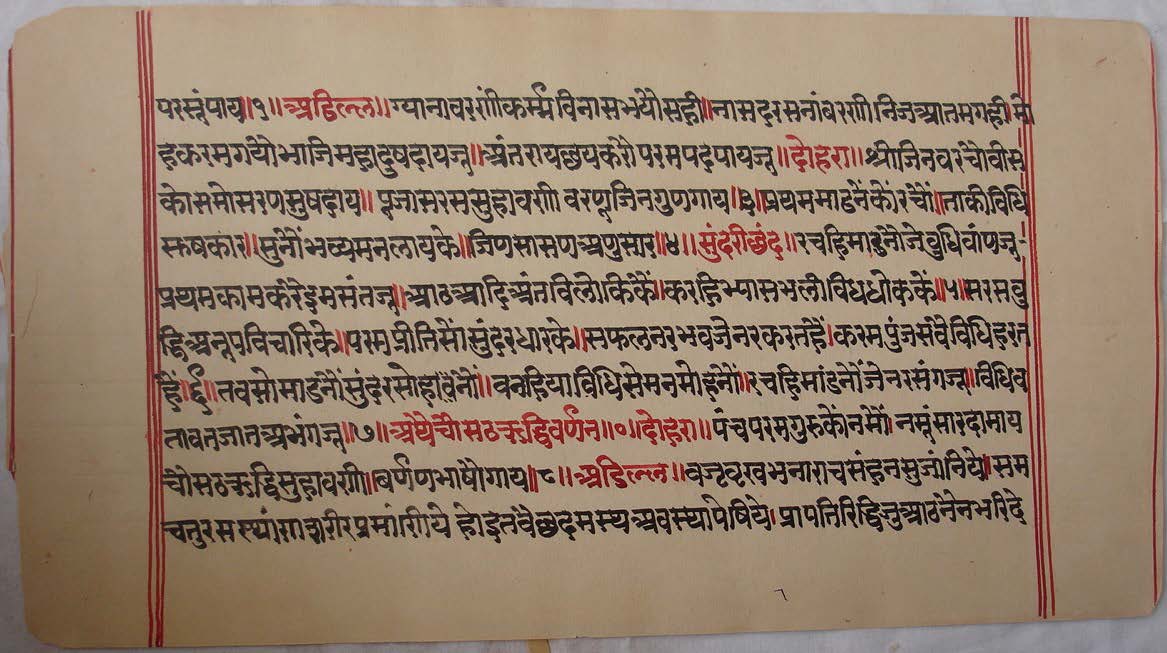 परसूंपाय॥१॥अडिल्ल॥ग्यानावरणीकर्म्मविनासभयौसही॥नासदरसनांबरणीनिजआतमगही॥मो
हकरमगयौभाजिमहादुषदायजू॥अंतरायछयकरौपरमपदपायजू॥दोहरा॥श्रीजिनवरचौवीस
कोसमोसरणसुषदाय॥पूजासरससुहावणी वरणूजिनगुणगाय॥३॥प्रथममाडनैंकौंरचौं॥ताकीविधि
सुषकार॥सुनौंभव्यमनलायके॥जिणसासणअणुसार॥४॥सुंदरीछंद॥रचहिमाडनौजेवुधिवांणजू
प्रथमकामकरेइमसंतजू॥आठआदिअंतविलोकिकैं॥करहिभ्यासभलीविधधोककें॥५॥सरसवु
द्धिअनूपविचारिके॥परमप्रीतिसौंसुंदरधारके॥सफलनरभवजेनरकरतहैं॥करमपुंजसवैविधिहरत
हैं॥६॥तवसोमाडनौंसुंदरसोहावनौं॥वनहियाविधिसेमनमोहनौं॥रचहिमांडनौंजेनरसंगजू॥विधिव
तावतजातअभंगजू॥७॥अथचौसठऋद्धिवर्णन॥०॥दोहरा॥पंचपरमगुरुकौंनमौं॥नमूंसारदामाय
चौसठऋद्धिसुहावणी॥बर्णणभाषौगाय॥८॥अडिल्ल॥वज्रवृखभनाराचसंहनसुजांनिये॥सम
चतुरसस्थांणशरीरप्रमांणीये होइतवैछदमस्थअवस्थापेषिये॥प्रापतिरिद्धिजुआठनेनभरिदे